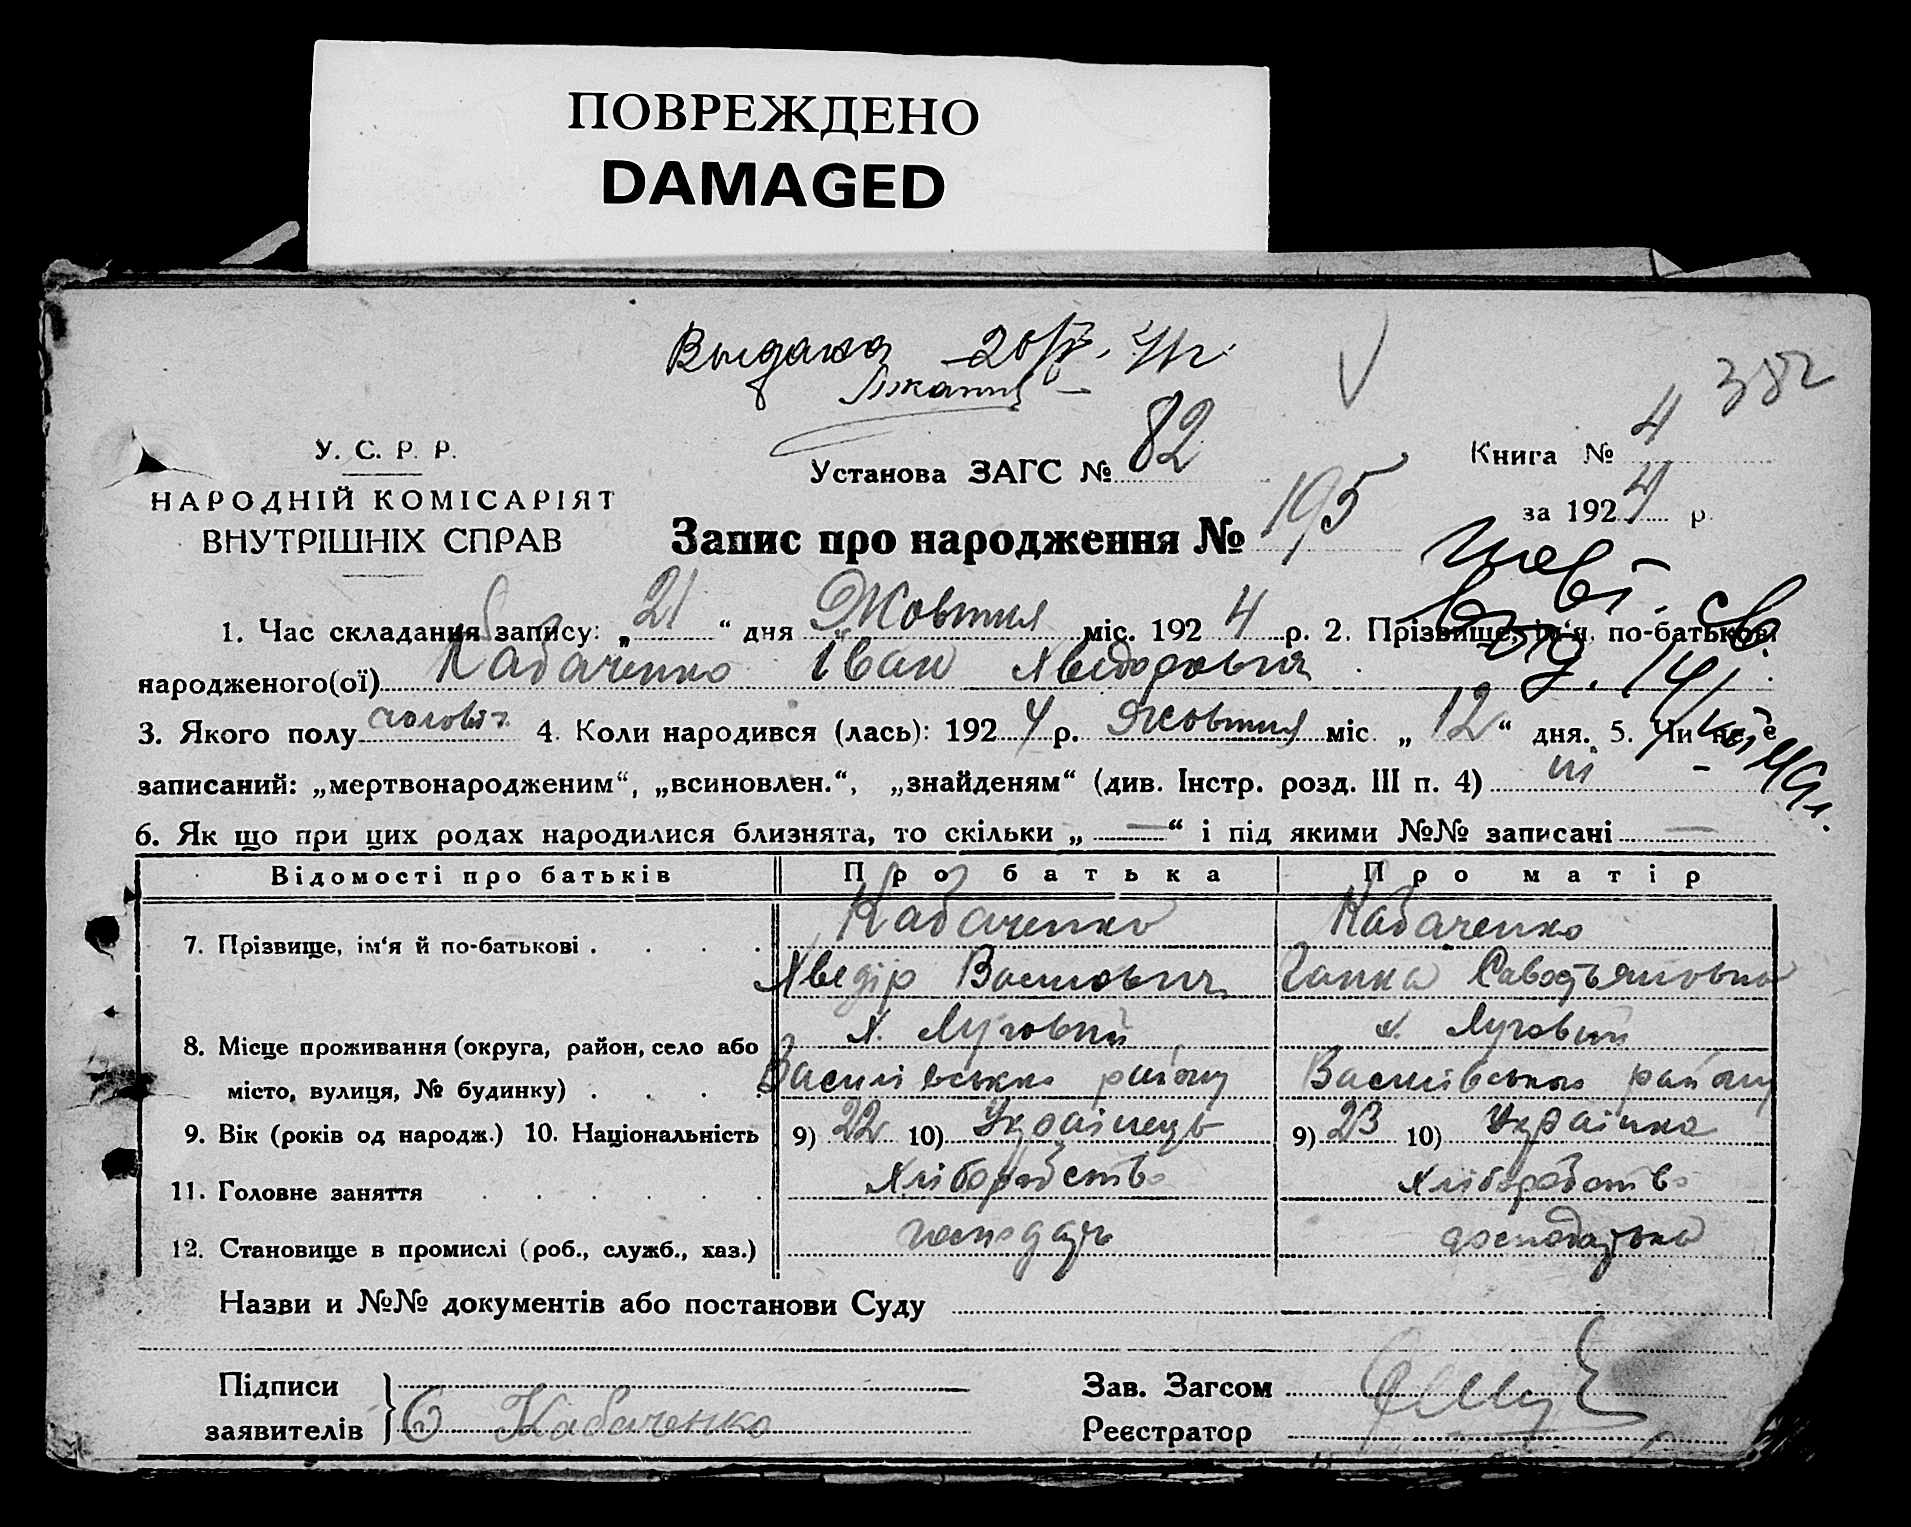 ПОВРЕЖДЕНО
DAMAGED
Выдана 20/
382
У. С. Р. Р.
НАРОДНІЙ КОМІСАРІЯТ
ВНУТРІШНІХ СПРАВ
Установа ЗАГС № 82
Книга № 4
за 1924 р.
Запис про народження № 195
1. Час складання запису: „21“ дня Жовтня міс. 1924 р. 2. Прізвище, ім‘я, по-батькові
народженого(ої) Кабаченко Іван Хведорович
3. Якого полу чоловіч. 4. Коли народився (лась): 1924 р. Жовтня міс. „12“ дня. 5. Чи не є
записаний: „мертвонародженим“, „всиновлен.“, „знайденям“ (див. Інстр. розд. III п. 4) ні
6. Як що при цих родах народилися близнята, то скільки „ — “ і під якими №№ записані —
Відомості про батьків Про батька Про матір
7. Прізвище, ім‘я й по-батькові Кабаченко Кабаченко
Хведір Васильович Ганка
8. Місце проживання (округа, район, село або х. Луговий х. Луговий
місто, вулиця, № будинку) Василівського району Василівського району
9. Вік (років од народж.) 10. Національність 9) 22 10) Українець 9) 23 10) Українка
11. Головне заняття Хліборобство Хліборобство
12. Становище в промислі (роб., служб., хаз.) господарь господарька
Назви и №№ документів або постанови Суду
Підписи
заявителів } Кабаченко
Зав. Загсом
Реєстратор